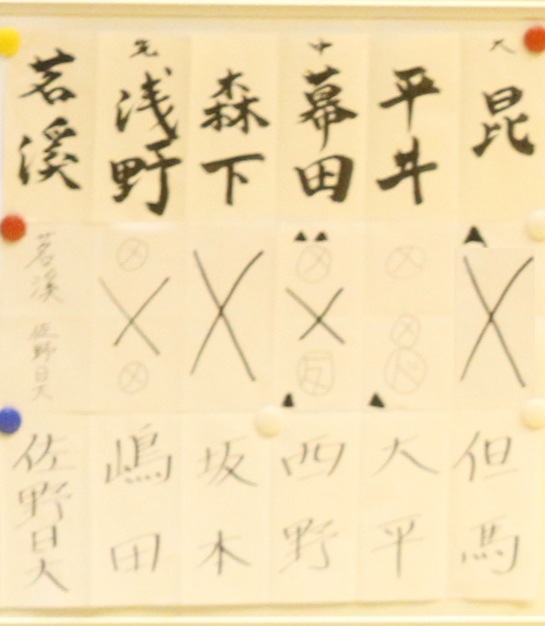 大
昆
平井
中
幕田
森下
先
浅野
茗溪
メ
メ
反
メ
メ
茗溪
佐野日大
但馬
大平
西野
坂木
嶋田
佐野日大